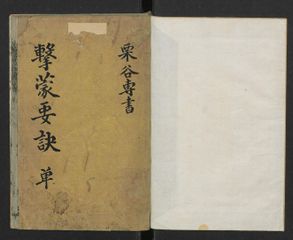 擊蒙要訣 單
栗谷專書